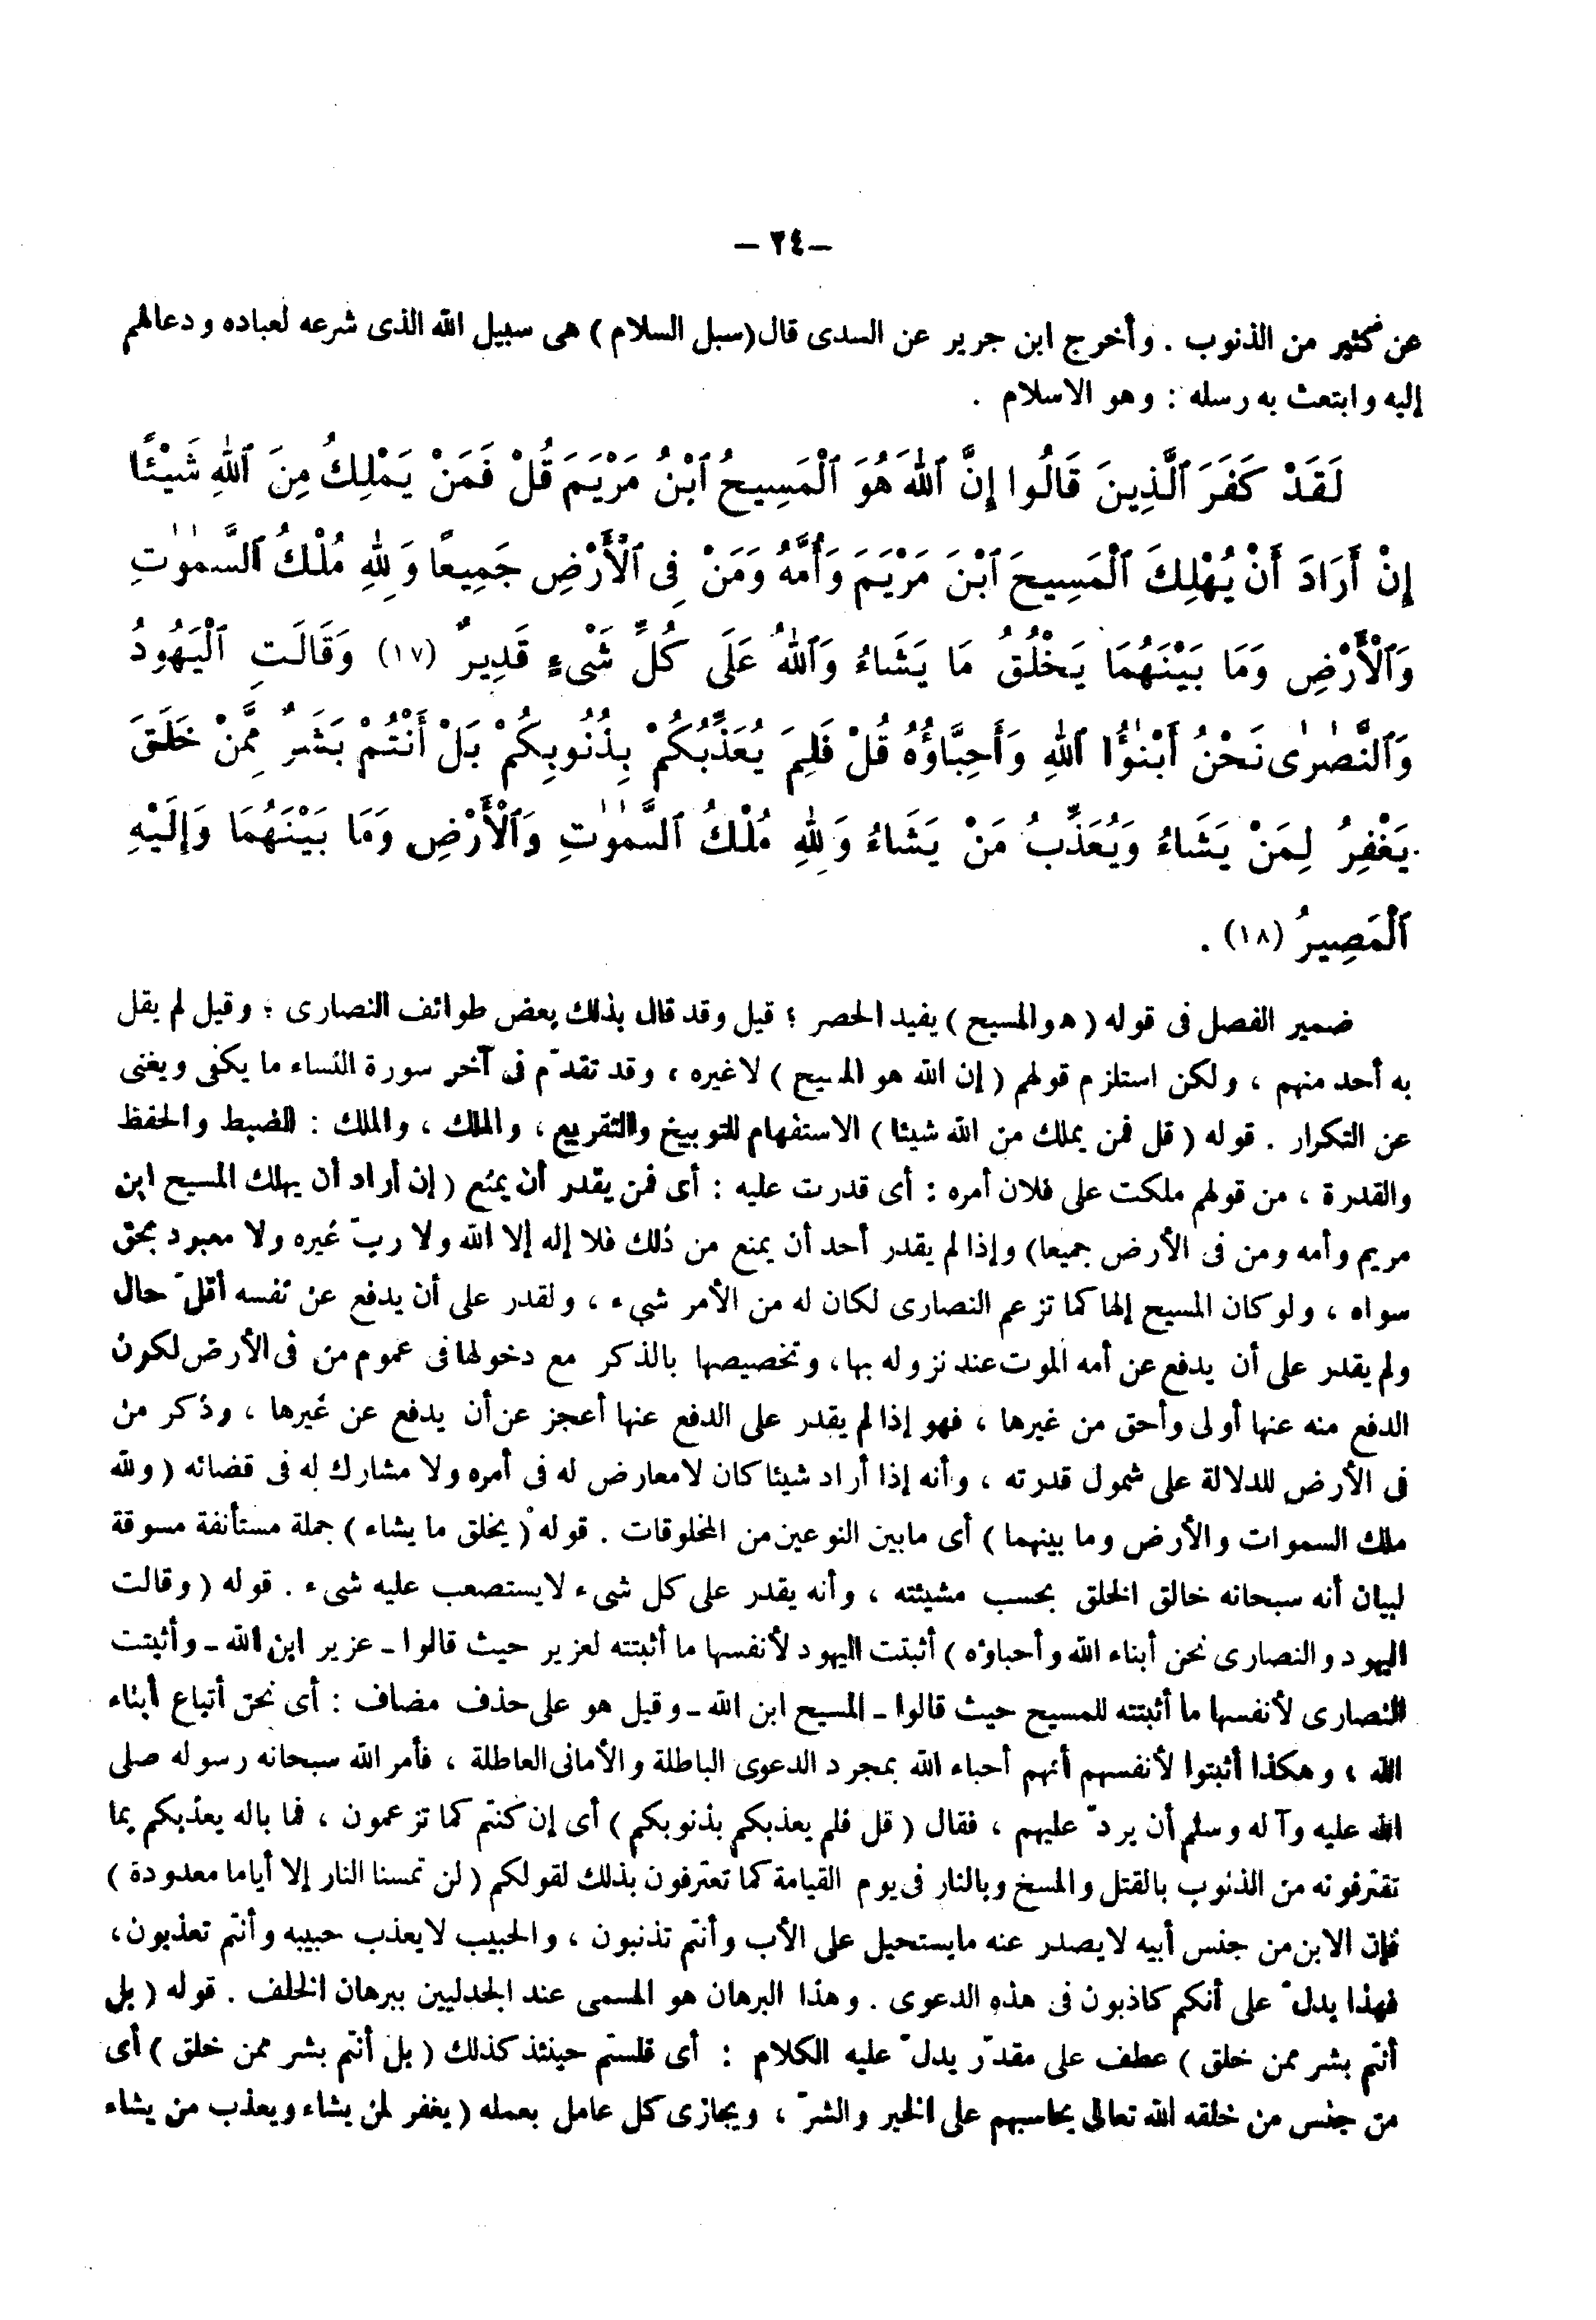 — ٢٤ —
عن كثير من الذنوب . وأخرج ابن جرير عن السدى قال (سبل السلام) هى سبيل الله الذى شرعه لعباده ودعالهم
إليه وابتعث به رسله : وهو الاسلام .
لَقَدْ كَفَرَ ٱلَّذِينَ قَالُوا إِنَّ ٱللهَ هُوَ ٱلْمَسِيحُ ٱبْنُ مَرْيَمَ قُلْ فَمَنْ يَمْلِكُ مِنَ ٱللهِ شَيْئًا
إِنْ أَرَادَ أَنْ يُهْلِكَ ٱلْمَسِيحَ ٱبْنَ مَرْيَمَ وَأُمَّهُ وَمَنْ فِى ٱلْأَرْضِ جَمِيعًا وَلِلهِ مُلْكُ ٱلسَّمٰوٰتِ
وَٱلْأَرْضِ وَمَا بَيْنَهُمَا يَخْلُقُ مَا يَشَاءُ وَٱللهُ عَلَى كُلِّ شَىْءٍ قَدِيرٌ (١٧) وَقَالَتِ ٱلْيَهُودُ
وَٱلنَّصٰرٰى نَحْنُ أَبْنٰؤُا ٱللهِ وَأَحِبَّاؤُهُ قُلْ فَلِمَ يُعَذِّبُكُمْ بِذُنُوبِكُمْ بَلْ أَنْتُمْ بَشَرٌ مِمَّنْ خَلَقَ
يَغْفِرُ لِمَنْ يَشَاءُ وَيُعَذِّبُ مَنْ يَشَاءُ وَلِلهِ مُلْكُ ٱلسَّمٰوٰتِ وَٱلْأَرْضِ وَمَا بَيْنَهُمَا وَإِلَيْهِ
ٱلْمَصِيرُ (١٨) .
ضمير الفصل فى قوله ( هو المسيح ) يفيد الحصر ؛ قيل وقد قال بذلك بعض طوائف النصارى ؛ وقيل لم يقل
به أحد منهم ، ولكن استلزم قولهم ( إن الله هو المسيح ) لاغيره ، وقد تقدّم فى آخر سورة النساء ما يكفى ويغنى
عن التكرار . قوله ( قل فمن يملك من الله شيئا ) الاستفهام للتوبيخ والتقريع ، والملك ، والملك : الضبط والحفظ
والقدرة ، من قولهم ملكت على فلان أمره : أى قدرت عليه : أى فمن يقدر أن يمنع ( إن أراد أن يهلك المسيح ابن
مريم وأمه ومن فى الأرض جميعا) وإذا لم يقدر أحد أن يمنع من ذلك فلا إله إلا الله ولا ربّ غيره ولا معبود بحق
سواه ، ولو كان المسيح إلها كما تزعم النصارى لكان له من الأمر شىء ، ولقدر على أن يدفع عن نفسه أقلّ حال
ولم يقدر على أن يدفع عن أمه الموت عند نزوله بها، وتخصيصها بالذكر مع دخولها فى عموم من فى الأرض لكون
الدفع منه عنها أولى وأحق من غيرها ، فهو إذا لم يقدر على الدفع عنها أعجز عن أن يدفع عن غيرها ، وذكر من
فى الأرض للدلالة على شمول قدرته ، وأنه إذا أراد شيئا كان لامعارض له فى أمره ولا مشارك له فى قضائه ( ولله
ملك السموات والأرض وما بينهما ) أى مابين النوعين من المخلوقات . قوله ( يخلق ما يشاء ) جملة مستأنفة مسوقة
لبيان أنه سبحانه خالق الخلق بحسب مشيئته ، وأنه يقدر على كل شىء لايستصعب عليه شىء . قوله ( وقالت
اليهود والنصارى نحن أبناء الله وأحباؤه ) أثبتت اليهود لأنفسها ما أثبتته لعزير حيث قالوا ـ عزير ابن الله ـ وأثبتت
النصارى لأنفسها ما أثبتته للمسيح حيث قالوا ـ المسيح ابن الله ـ وقيل هو على حذف مضاف : أى نحن أتباع أبناء
الله ، وهكذا أثبتوا لأنفسهم أنهم أحباء الله بمجرد الدعوى الباطلة والأمانى العاطلة ، فأمر الله سبحانه رسوله صلى
الله عليه وآله وسلم أن يردّ عليهم ، فقال ( قل فلم يعذبكم بذنوبكم ) أى إن كنتم كما تزعمون ، فما باله يعذبكم بما
تقترفونه من الذنوب بالقتل والمسخ وبالنار فى يوم القيامة كما تعترفون بذلك لقولكم ( لن تمسنا النار إلا أياما معدودة )
فإن الابن من جنس أبيه لايصدر عنه مايستحيل على الأب وأنتم تذنبون ، والحبيب لايعذب حبيبه وأنتم تعذبون،
فهذا يدلّ على أنكم كاذبون فى هذه الدعوى . وهذا البرهان هو المسمى عند الجدليين ببرهان الخلف . قوله ( بل
أنتم بشر ممن خلق ) عطف على مقدّر يدلّ عليه الكلام : أى فلستم حينئذ كذلك ( بل أنتم بشر ممن خلق ) أى
من جنس من خلقه الله تعالى يحاسبهم على الخير والشرّ ، ويجازى كل عامل بعمله ( يغفر لمن يشاء ويعذب من يشاء